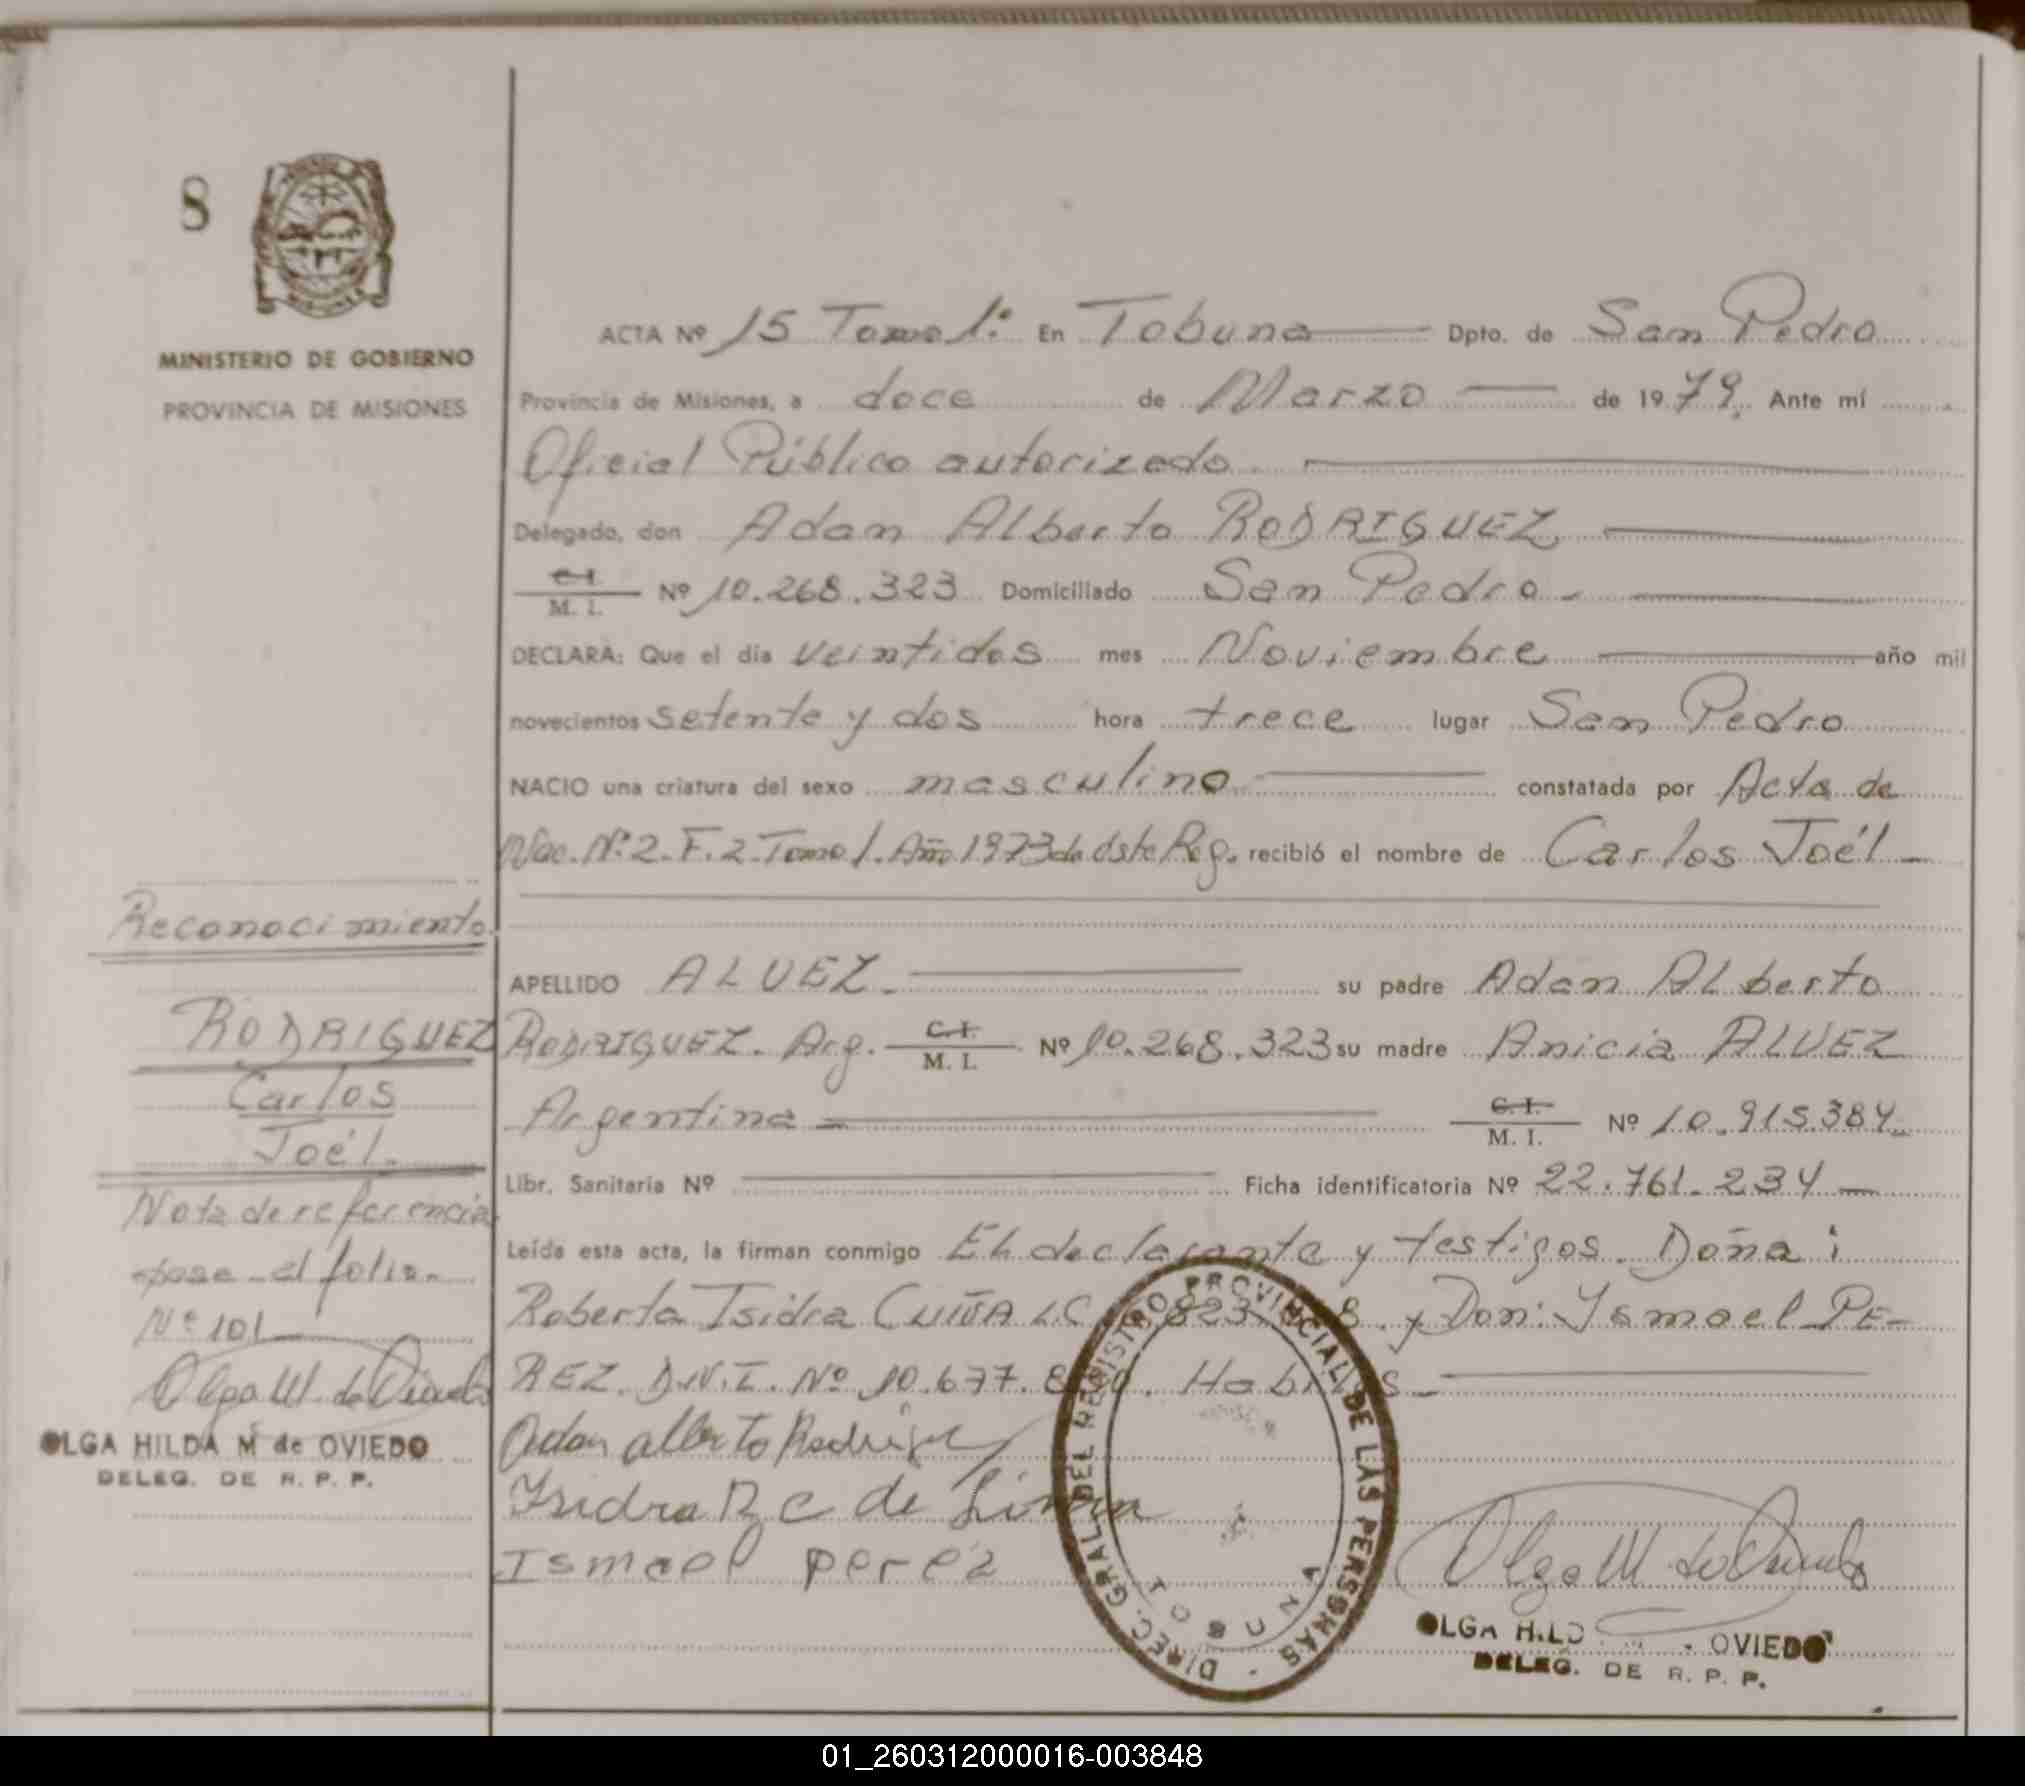 8
MINISTERIO DE GOBIERNO
PROVINCIA DE MISIONES
ACTA Nº 15 Tomo 1º En Tobuna Dpto. de San Pedro
Provincia de Misiones, a doce de Marzo de 1979. Ante mí
Oficial Público autorizado.
Delegado, don Adan Alberto RODRIGUEZ
C.I.
M. I. Nº 10.268.323 Domiciliado San Pedro.-
DECLARA: Que el día veintidos mes Noviembre año mil
novecientos setenta y dos hora trece lugar San Pedro
NACIO una criatura del sexo masculino constatada por Acta de
Nac. Nº 2. F. 2. Tomo 1. Año 1973 de este Reg. recibió el nombre de Carlos Joél
APELLIDO ALVEZ. su padre Adan Alberto
RODRIGUEZ. Arg. C.I. M. I. Nº 10.268.323 su madre Anicia ALVEZ
Argentina C.I. M. I. Nº 10.915.384
Libr. Sanitaria Nº Ficha identificatoria Nº 22.761.234
Leída esta acta, la firman conmigo El declarante y testigos. Doña:
Roberta Isidra CUIÑA L.C. 823 8. y Don: Ismael PE-
REZ. D.N.I. Nº 10.677. Habiles
Adan alberto Rodriguez
Isidra R C de
Ismael perez
Reconocimiento.
RODRIGUEZ
Carlos
Joél.
Nota de referencia
pase al folio
Nº 101
Olga M. de Oviedo
OLGA HILDA M de OVIEDO
DELEG. DE R. P. P.
DIREC. GRAL. DEL REGISTRO PROVINCIAL DE LAS PERSONAS
TOBUNA
Olga M. de Oviedo
OLGA HILD OVIEDO
DELEG. DE R. P. P.
01_260312000016-003848